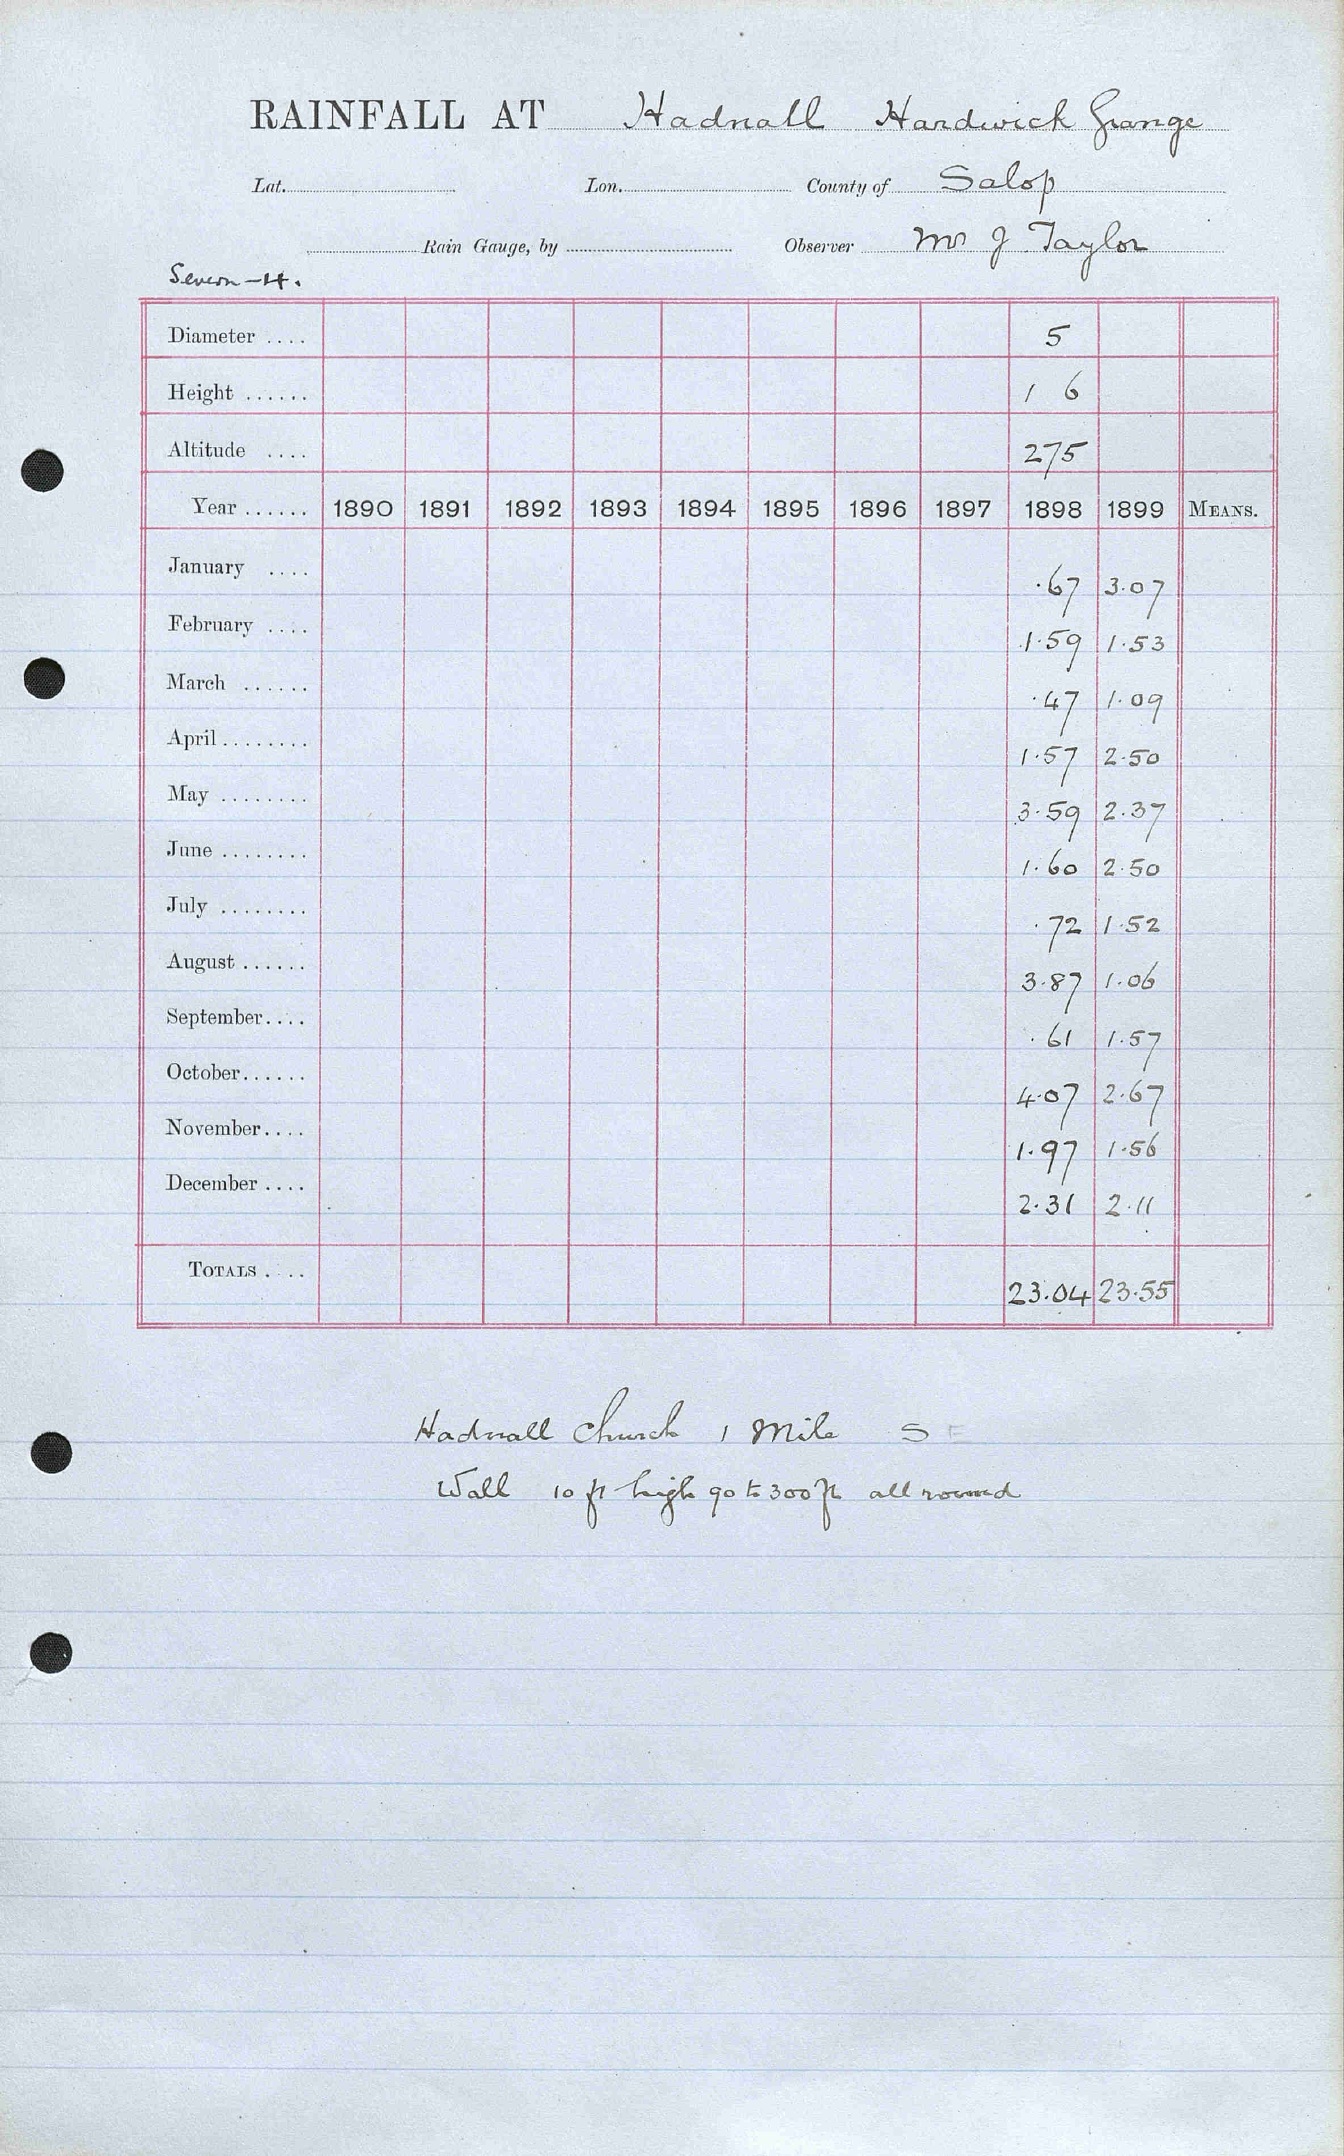 RAINFALL AT Hadnall Hardwick Grange
Lat. Lon. County of Salop
Rain Gauge, by Observer Mr J Taylor
Severn - 4.
Diameter .... 5
Height ...... 1 6
Altitude .... 275
Year ...... 1890 1891 1892 1893 1894 1895 1896 1897 1898 1899 MEANS.
January .... .67 3.07
February .... 1.59 1.53
March ...... .47 1.09
April ........ 1.57 2.50
May ........ 3.59 2.37
June ........ 1.60 2.50
July ........ .72 1.52
August ...... 3.87 1.06
September .... .61 1.57
October ...... 4.07 2.67
November .... 1.97 1.56
December .... 2.31 2.11
TOTALS .... 23.04 23.55
Hadnall Church 1 Mile S E
Wall 10 ft high 90 to 300 ft all round